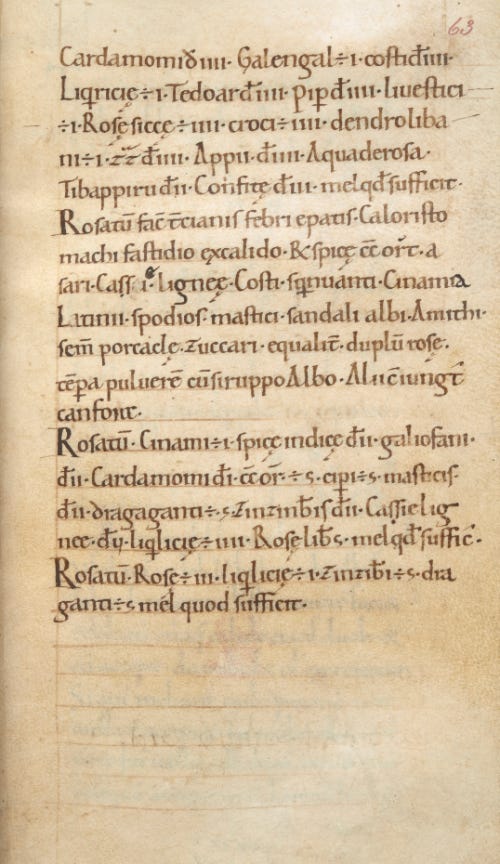 63
Cardamomi đ iiii · Galengal ÷ i · costi đ iiii ·
Liqiricię ÷ i · Tedoar đ iiii · pip̄ đ iiii · livestici
÷ i · Rosę siccę ÷ iiii · croci ÷ iiii · dendroliba
ni ÷ i · zz̄ đ iiii · Appii · đ iiii · Aquaderosa ·
Tibappiru đ ii · Confitę đ iii · mel qđ sufficit ·
Rosatū fac̄ t̄cianis febri epatis · Calori sto
machi fastidio ex calido · R spicę c̄c or̄t · a
sari · Cass · i · ligneę · Costi · sqinuanti · Cinamia
Latini · spodios · mastici · sandali albi · Amithi ·
sem̄ porcaclę · zuccari · equalit̄ · duplū rosę ·
t̄epa pulverē cū siruppo Albo · Alii c̄iungt̄
canfora ·
Rosatū · Cinami ÷ i · spicę indicę đ ii · galiofani ·
đ ii · Cardamomi đ i · c̄c or̄ · ÷ s · cipi ÷ s · masticis ·
đ ii · dragaganti ÷ s · zinzib̄is đ ii · Cassię lig
neę · đ ii · liqiricię ÷ iiii · Rosę lib̄ s · mel qđ suffic̄ ·
Rosatū · Rosę ÷ iii · liqiricię ÷ i · zinzib̄i ÷ s · dra
ganti ÷ s mel quod sufficit ·